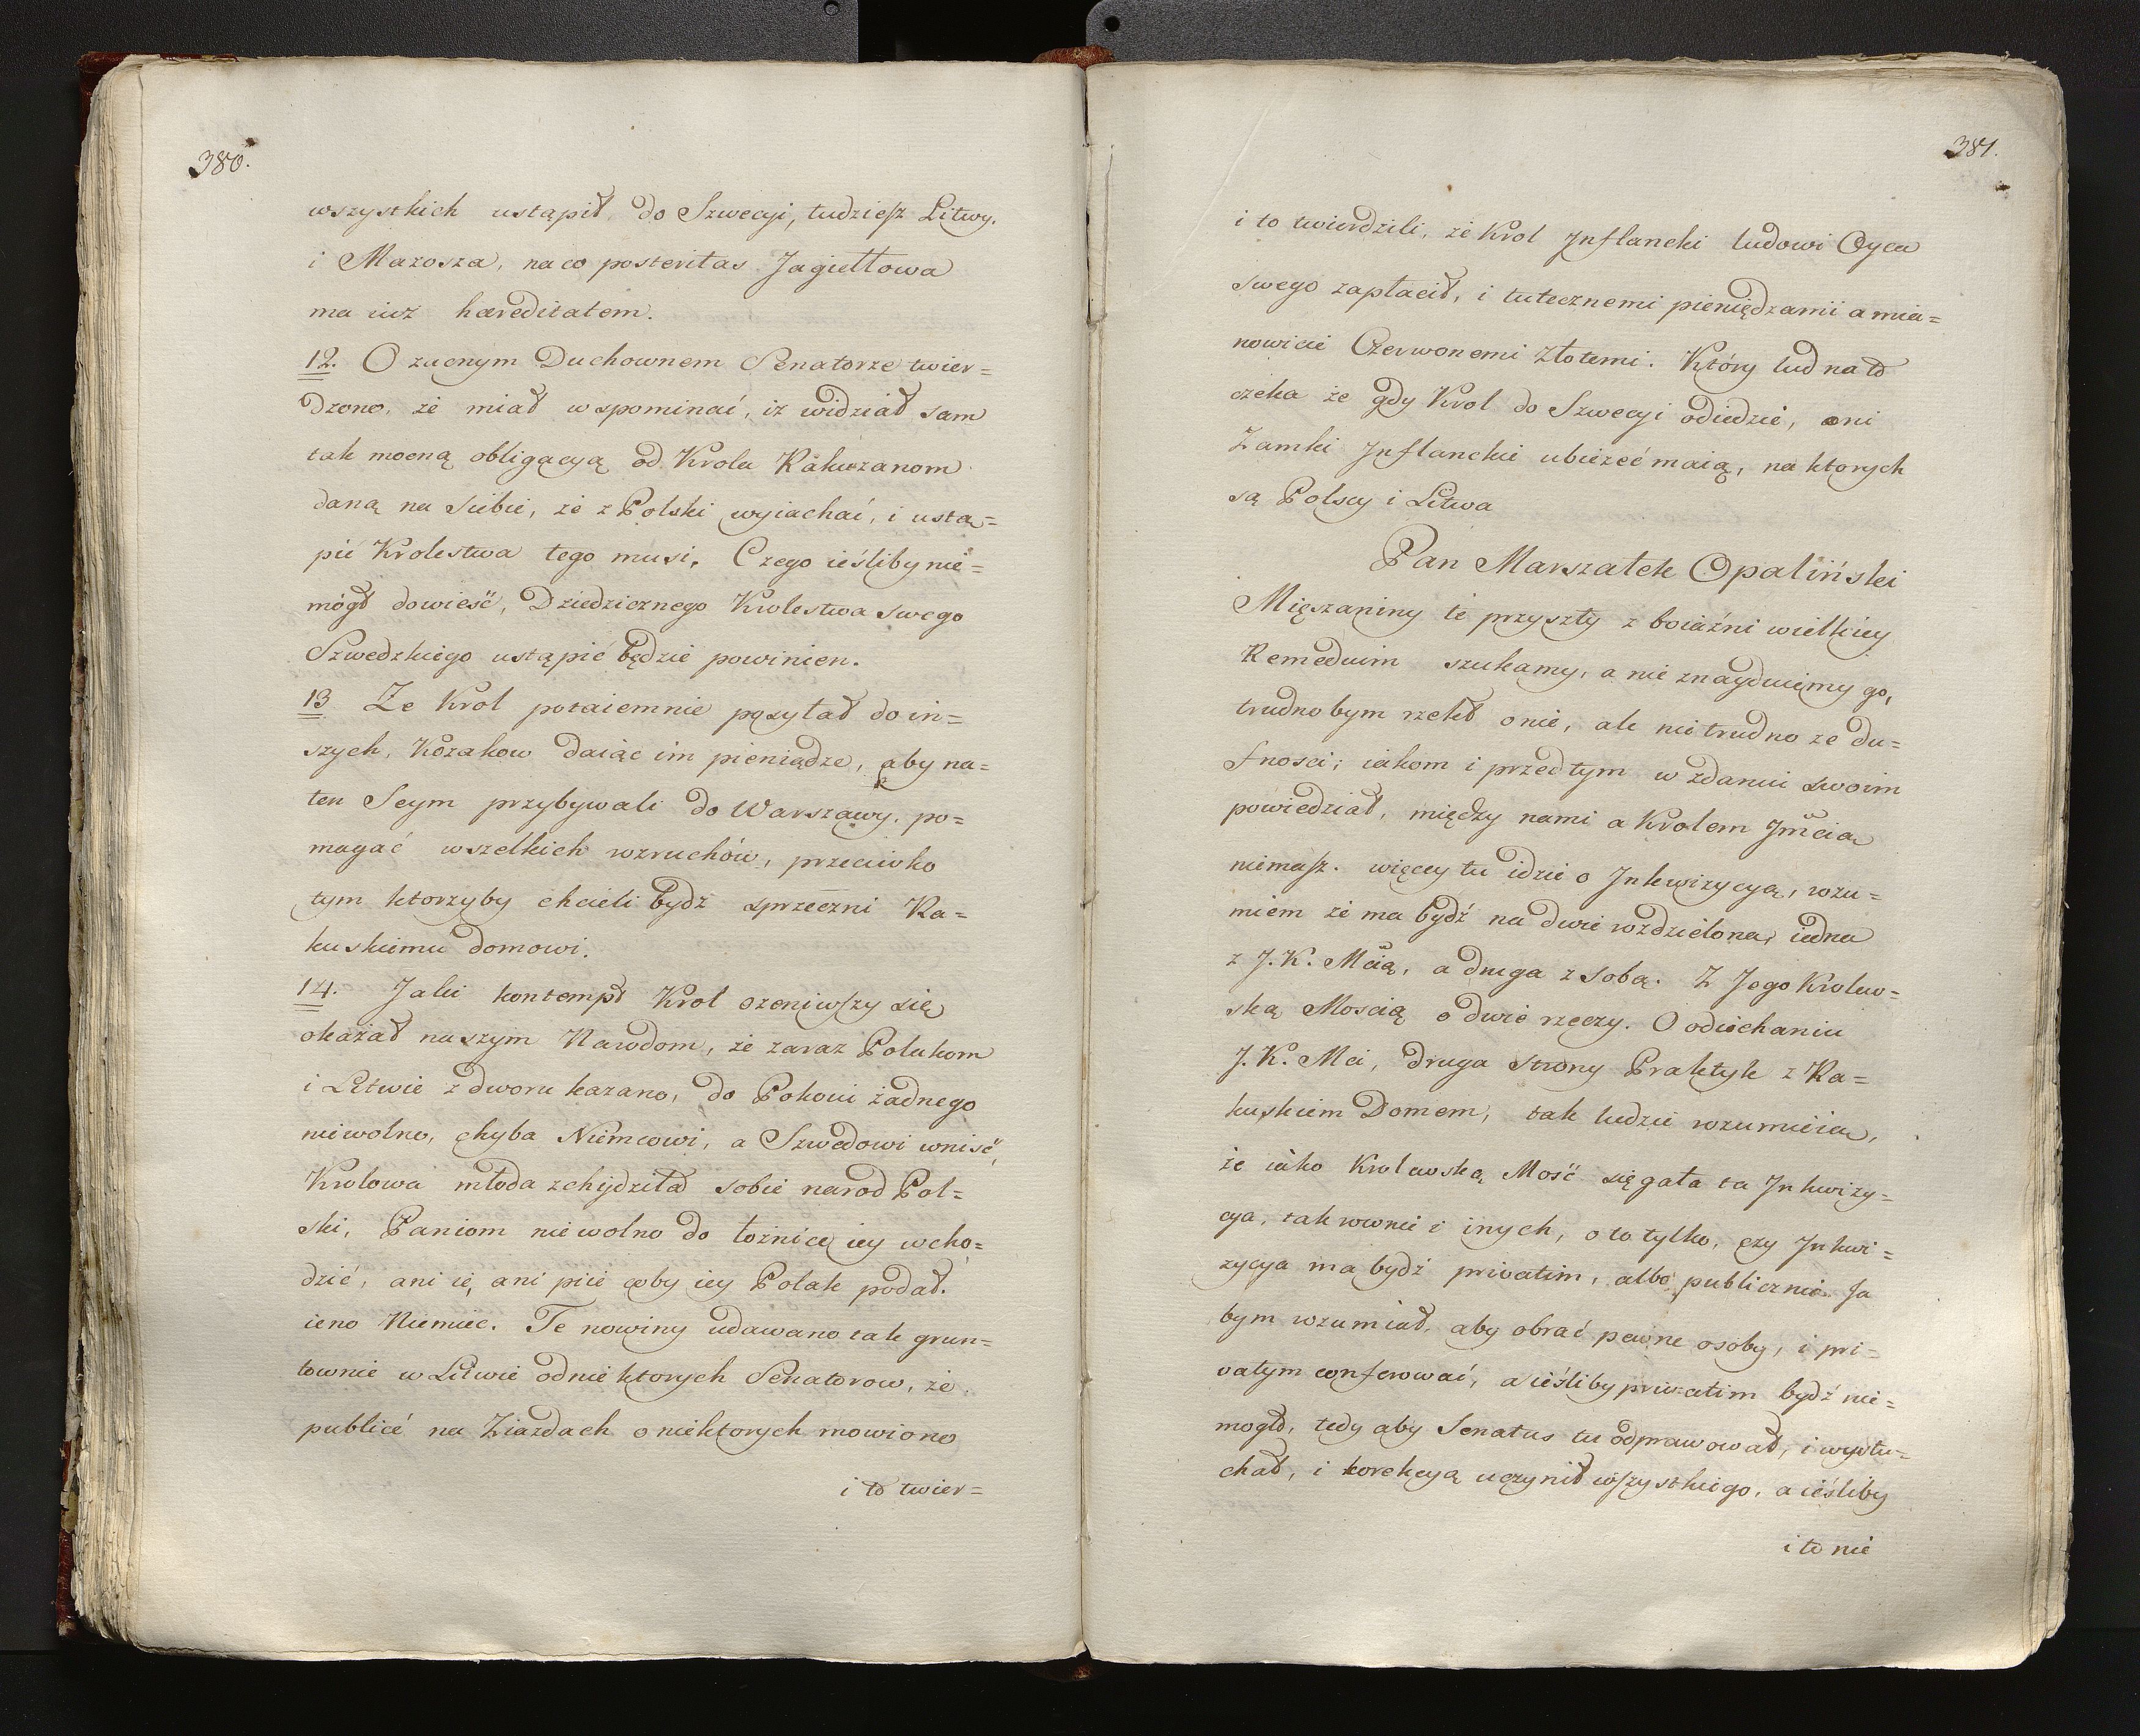 380.
wszystkich ustąpił do Szwecyi, tudzieſz Litwy.
i Mazosza, na co posteritas Jagiełłowa
ma iuż hæreditatem.
12. O zacnym Duchownem Senatorze twier=
dzono, że miał wspominać, iż widział sam
tak mocną obligącyą od Krola Rakuszanom
daną na siebie, że z Polski wyiachać, i ustą=
pić Krolestwa tego musi. Czego ieśliby nie=
mógł dowieść, Dziedzicznego Krolestwa swego
Szwedzkiego ustąpić będzie powinien.
13 Ze Krol potaiemnie posyłał do in=
szych, Kozakow daiąc im pieniądze, aby na=
ten Seym przybywali do Warszawy, po=
magać wszelkich wzruchów, przeciwko
tym ktorzyby chcieli bydź sprzeczni Ra=
kuskiemu domowi.
14. Jaki kontempt Krol ozeniwſzy się
okazał naszym Narodom, że zaraz Polakom
i Litwie z dworu kazano, do Pokoiu żadnego
niewolno, chyba Niemcowi, a Szwedowi wniść,
Krolowa młoda zchijdziła sobie narod Pol=
ski, Paniom nie wolno do łożnice iey wcho=
dzić, ani ie, ani piie coby iey Polak podał.
ieno Niemiec. Te nowiny udawano tak grun=
townie w Litwie od niektorych Senatorow, że
publicé na Ziazdach o niektorych mowiono
i to twier=
381.
i to twierdzili, że Krol Jnflancki ludowi Oyca
swego zapłacił, i tutecznemi pieniędzamii a mia=
nowicie Czerwonemi Złotemi. Który lud na to
czeka że gdy Krol do Szwecyi odiedzie, oni
Zamki Jnflanckie ubieżeć maią, na ktorych
są Polacy i Litwa
Pan Marszałek Opaliński
Mięszaniny te przyszły z boiaźni wielkiey
Remedium szukamy, a nie znayduiemy go,
trudno bym rzekł o nie, ale nie trudno ze du=
fnosci; iakom i przed tym w zdaniu swoim
powiedział, między nami a Krolem Jmcią
niemaſz. więcey tu idzie o Jnkwizycyą, rozu=
miem że ma bydź na dwie rozdzielona, iedna
z J. K. Mcią, a druga z sobą. Z Jego Krolew=
ską Moscią o dwie rzęczy. O odiechaniu
J. K. Mci, druga strony Praktyk z Ra=
kuskiem Domem, tak ludzie rozumieią,
że iako Krolewską Mość sięgała ta Jnkwizy=
cya, tak rownie i inych, o to tylko, czy Jnkwi=
zycya ma bydź privatim, albo publicznie Ja
bym rozumiał, aby obrać pewne osoby, i pri=
vatym conferować, a ieśliby privatim bydź nie=
mogło, tedy aby Senatus tu odprawował, i wysłu=
chał, i korekcyą uczynił wſzystkiego, a ieśliby
i to nie